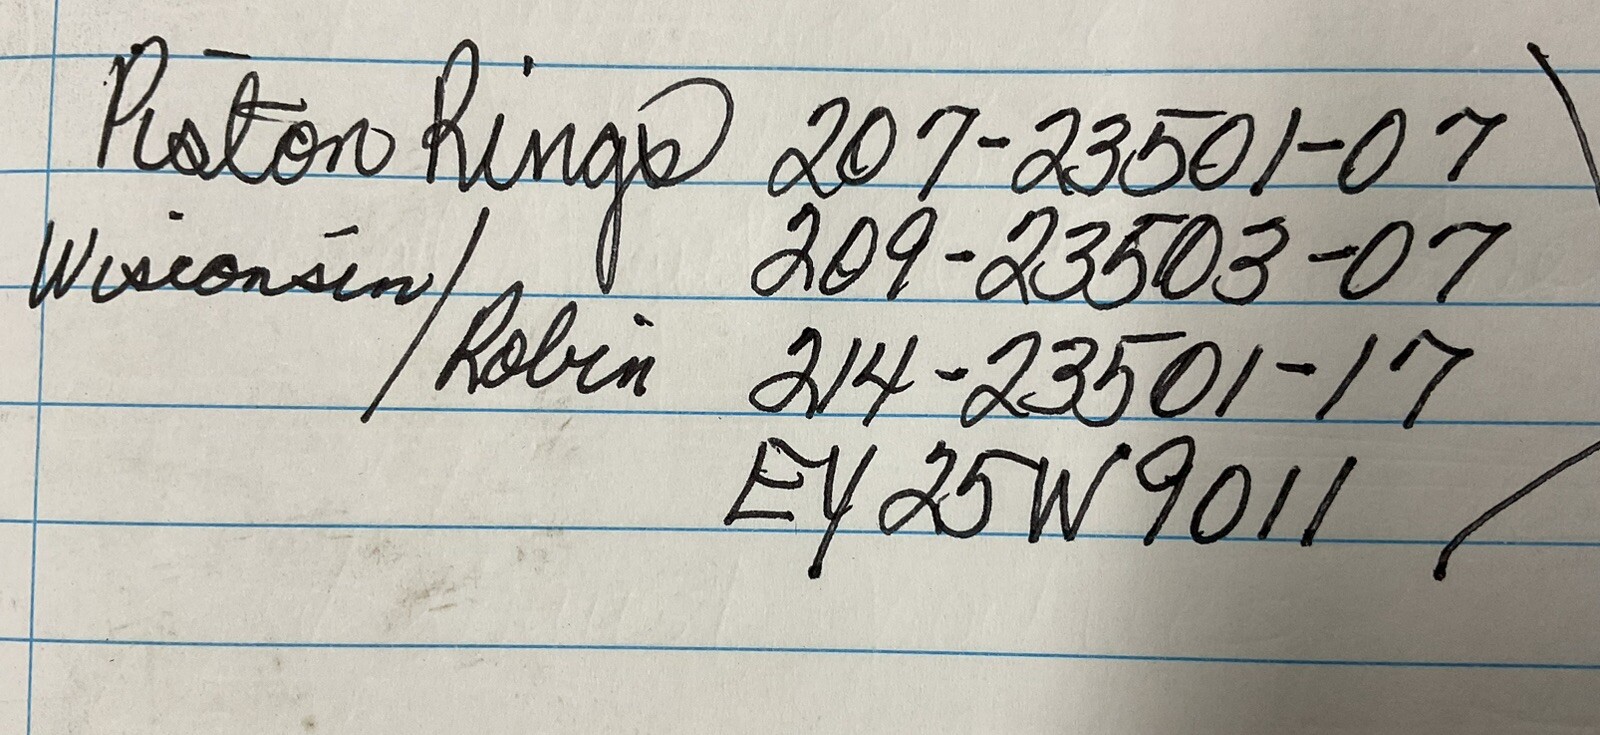 Piston Rings 207-23501-07
Wisconsin/ 209-23503-07
Robin 214-23501-17
EY25W9011